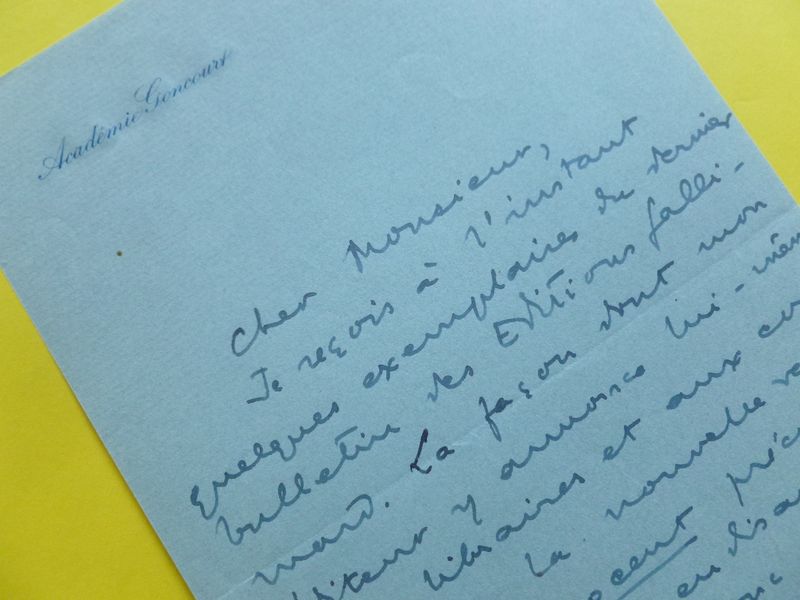 Académie Goncourt
Cher Monsieur,
Je reçois à l'instant
quelques exemplaires du dernier
bulletin des Editions falli-
mard. La façon dont mon
éditeur y annonce lui-même
libraires et aux
la nouvelle
en disant